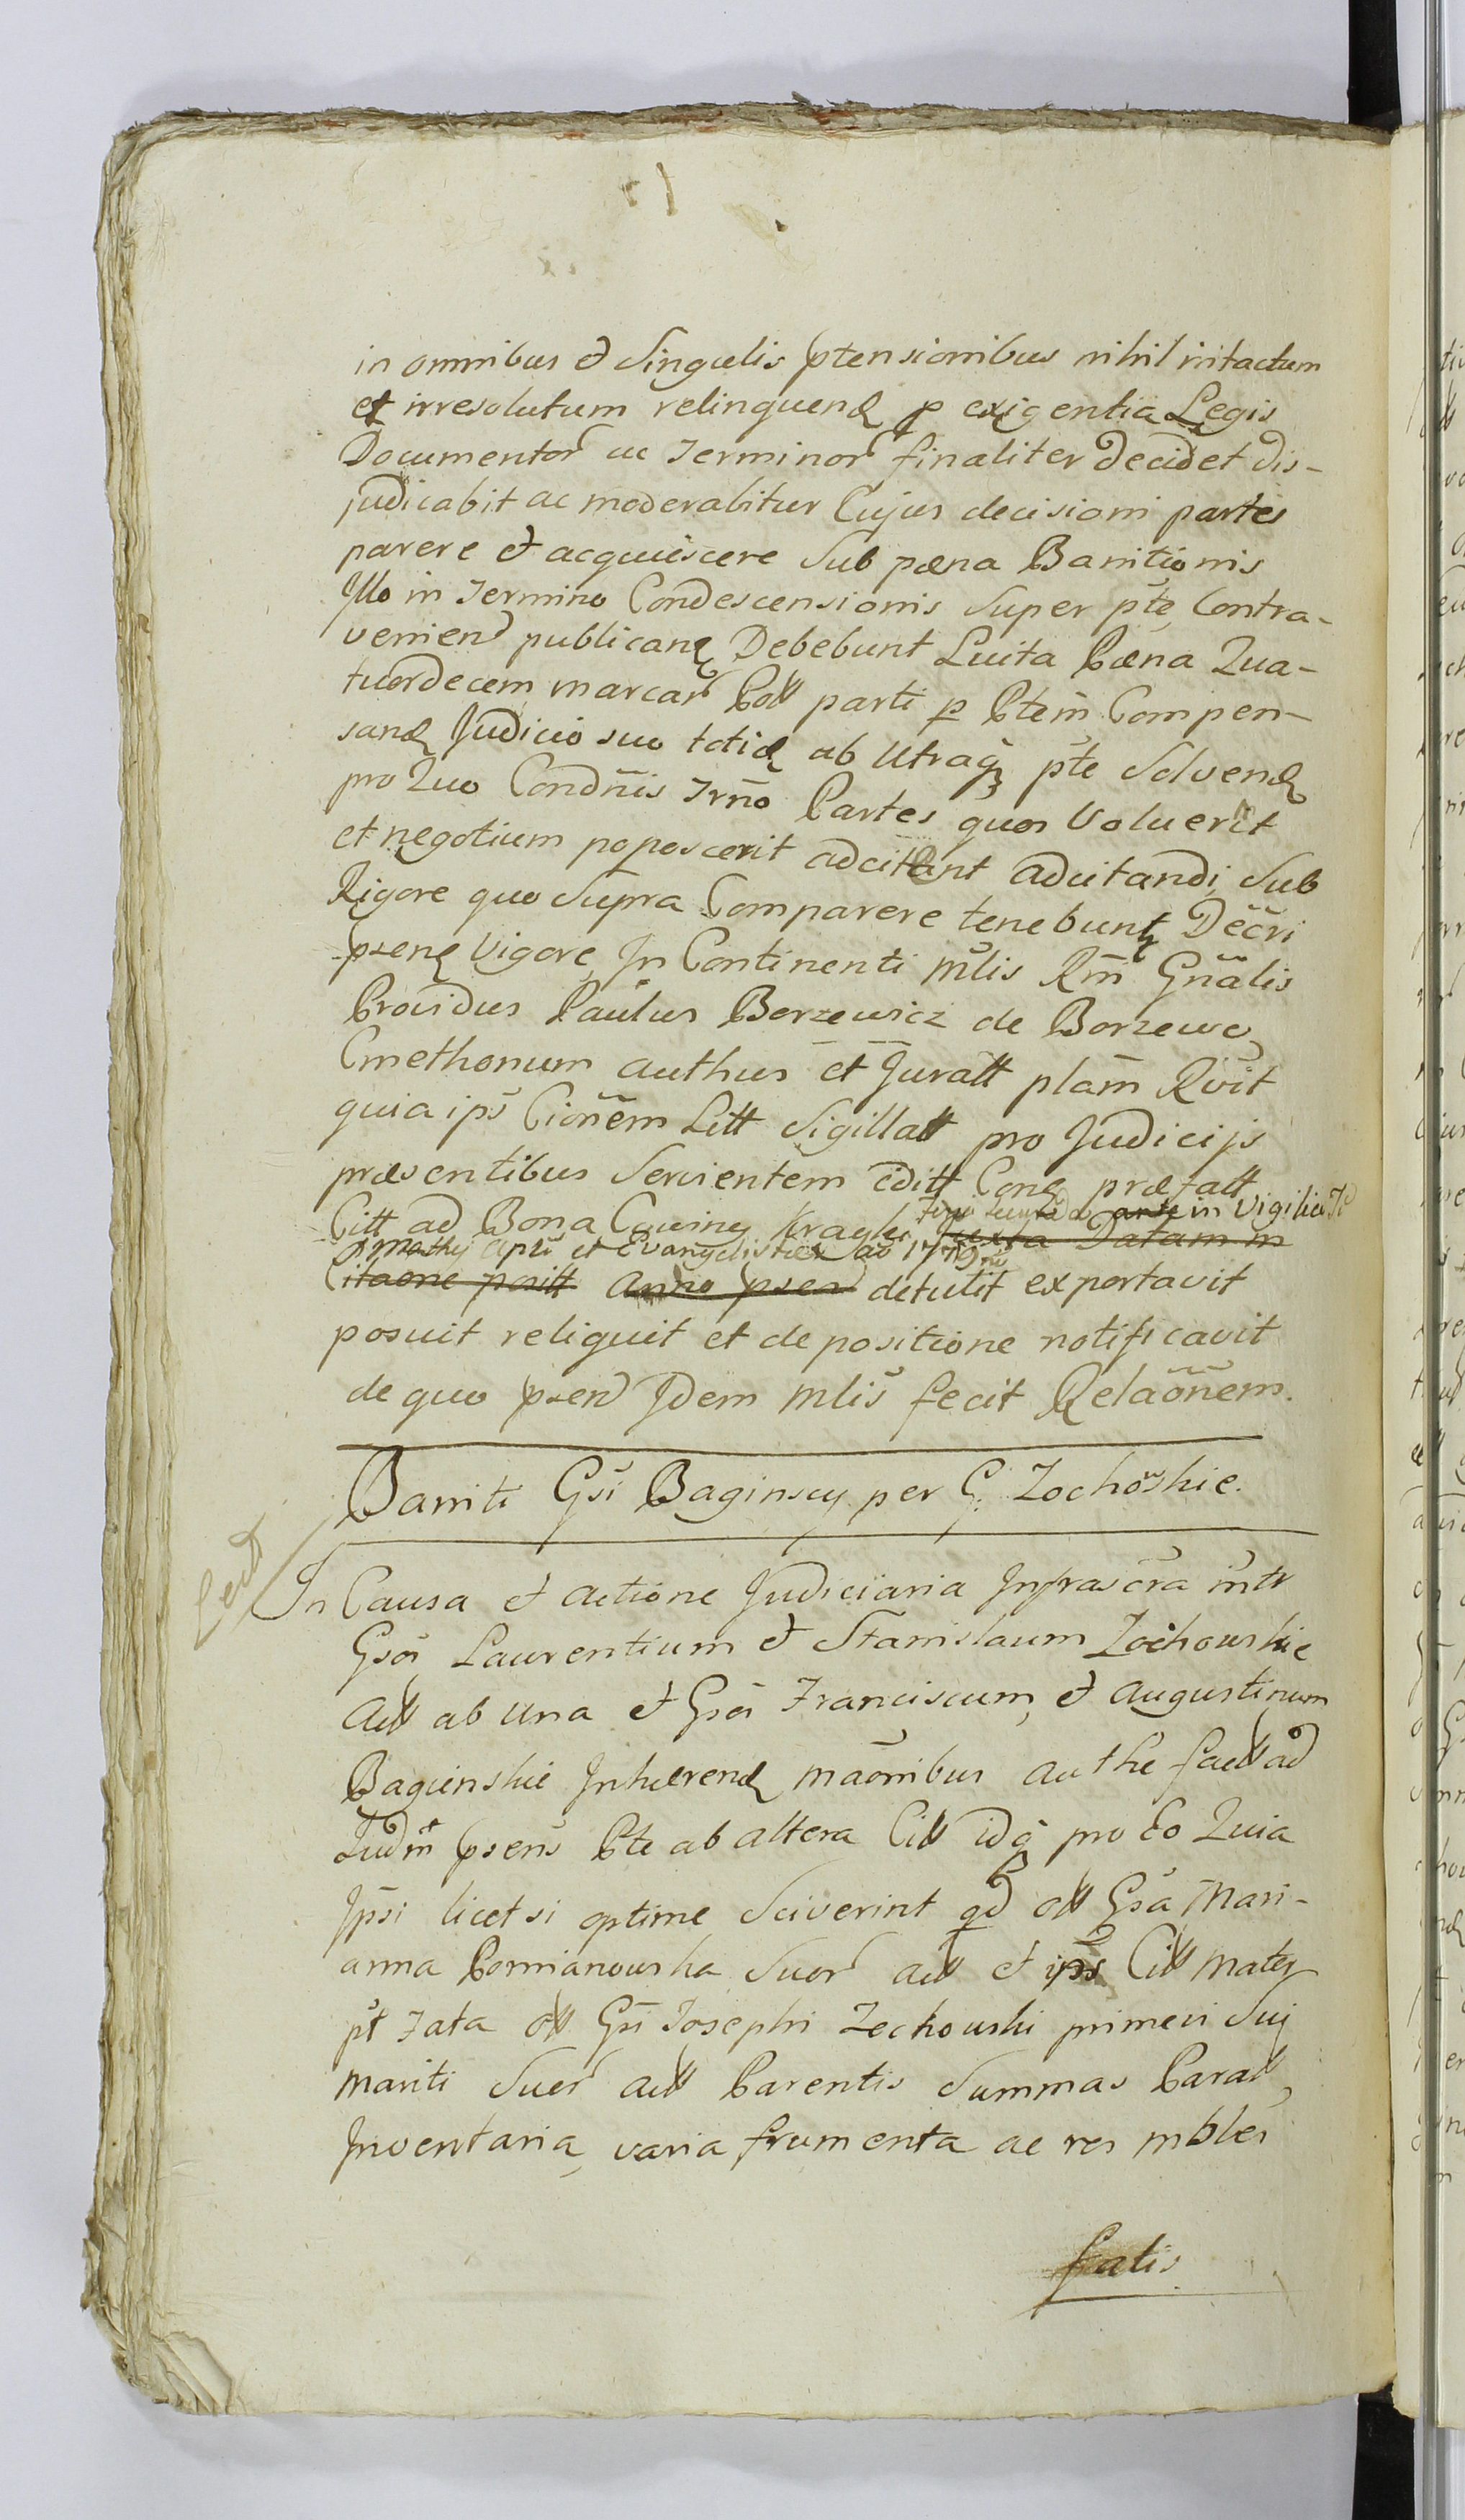 in omnibus et Singulis ptensionibus nihil intactum
et irresolutum relinquend p exigentia Legis
Documentor ac Terminor finaliter decidet dis-
judicabit ac moderabitur Cujus decisioni partes
parere et acquiescere Sub pæna Banitionis
Illo in Termino Condescensionis Super pte Contra-
veniend publicand Debebunt Luita Pæna Qua-
tuordecem marcar Poll parti p Ptem Compen-
sand Judicio suo totid ab Utraq pte Solvend
pro Quo Condnis Trno Partes quos Voluerit
et negotium poposcerit adcitant adcitandi Sub
Rigore quo Supra Comparere tenebunt Decri
psend Vigore In Continenti mlis Rm Gnalis
Providus Paulus Borzewicz de Borzewo
Cmethonum authus et Juratt plam Rvit
quia ips Cionem Litt Sigillatt pro Judicijs
præsentibus Servientem editt Cong præfatt
Feria Secunda ante in Vigilia
Citt ad Bona Kragle juxta Datam in
Mathej Apli et Evangelistæ ao 1779
Citaone positt Anno psen detulit exportavit
posuit reliquit et de positione notificavit
de quo psend Idem mlis fecit Relaonem.
Baniti Gsi Baginscy per G. Zochowskie.
In Causa et actione Judiciaria Infrascra intr
Gsos Laurentium et Stanislaum Zochowskie
Act ab una et Gsos Franciscum et Augustinum
Baginskie Inhærend maonibus authe fact ad
Judm psens Pte ab altera Citt idq pro Eo Quia
Ipsi licet si optime Sciverint qd oll Gsa Mari-
anna Pomianowska Suor act et ips Citt Mater
pt Fata oll Gsi Josephi Zochowski primevi Suj
Mariti Suor act Parentis Summas Parat,
Inventaria, varia frumenta ac res mbles
satis